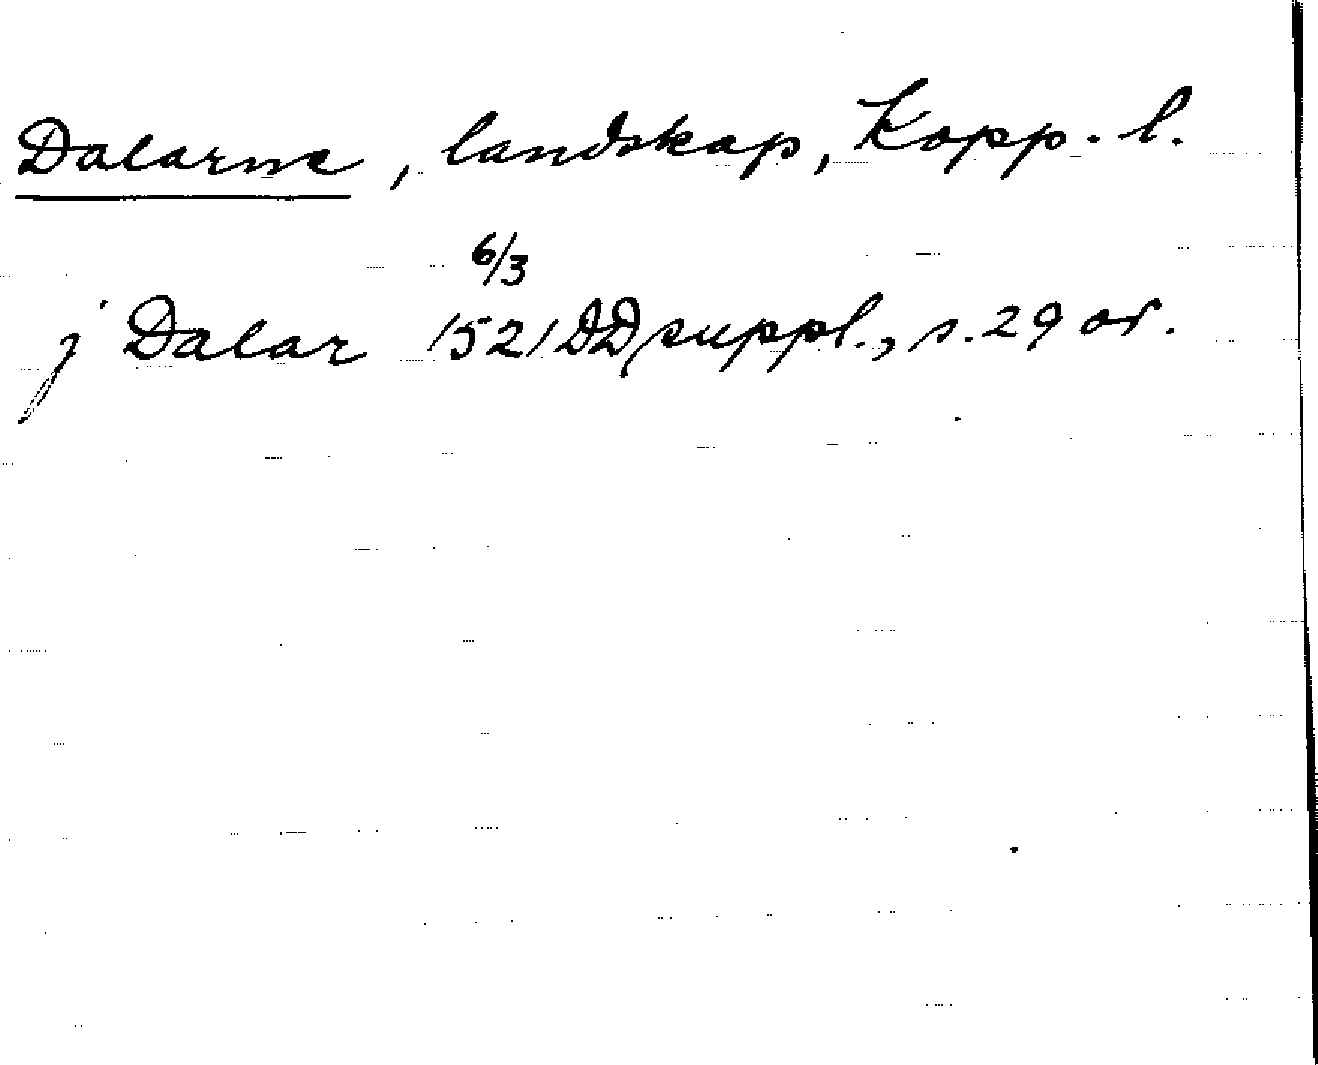 Dalarne, landskap, Kopp. l.
6/3
j Dalar 1521 DD suppl., s. 29 or.